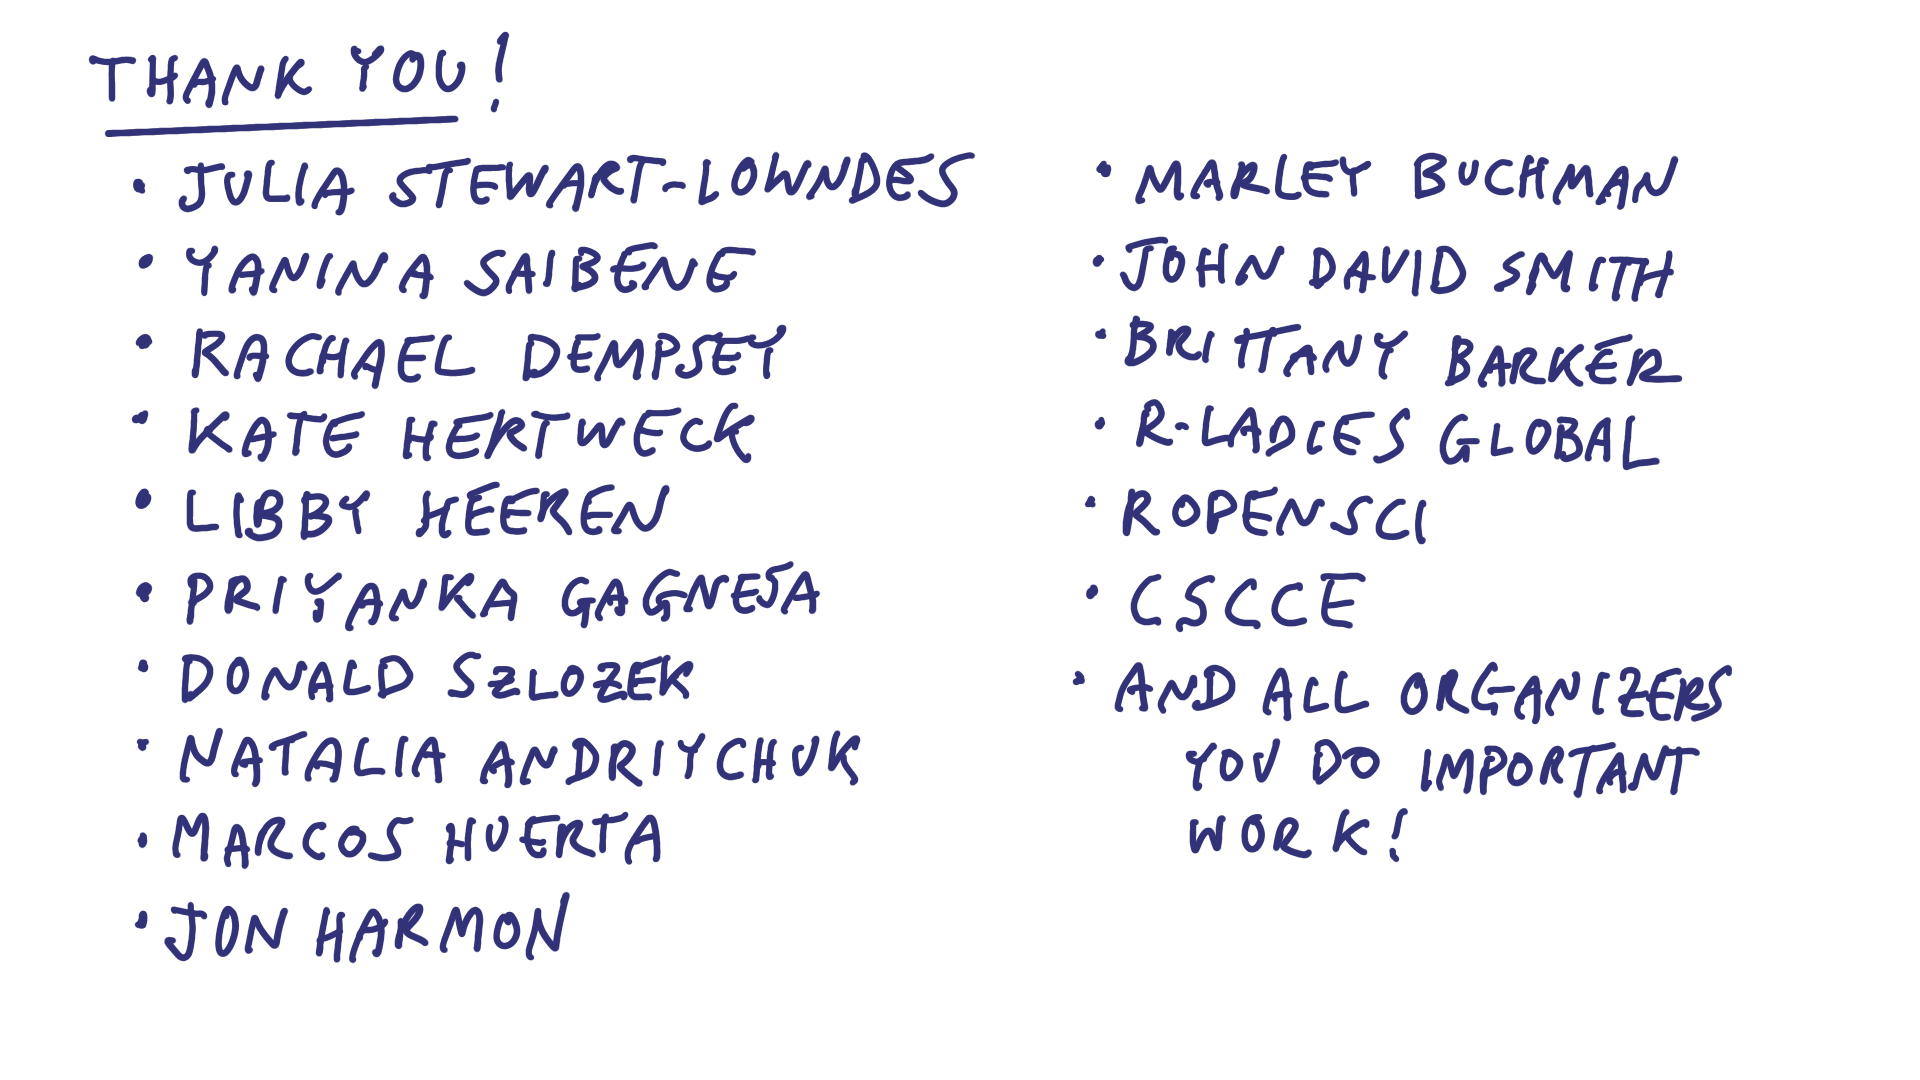 THANK YOU!
• JULIA STEWART-LOWNDES
• YANINA SAIBENE
• RACHAEL DEMPSEY
• KATE HERTWECK
• LIBBY HEEREN
• PRIYANKA GAGNEJA
• DONALD SZLOZEK
• NATALIA ANDRIYCHUK
• MARCOS HUERTA
• JON HARMON
• MARLEY BUCHMAN
• JOHN DAVID SMITH
• BRITTANY BARKER
• R-LADIES GLOBAL
• ROPENSCI
• CSCCE
• AND ALL ORGANIZERS
YOU DO IMPORTANT
WORK!